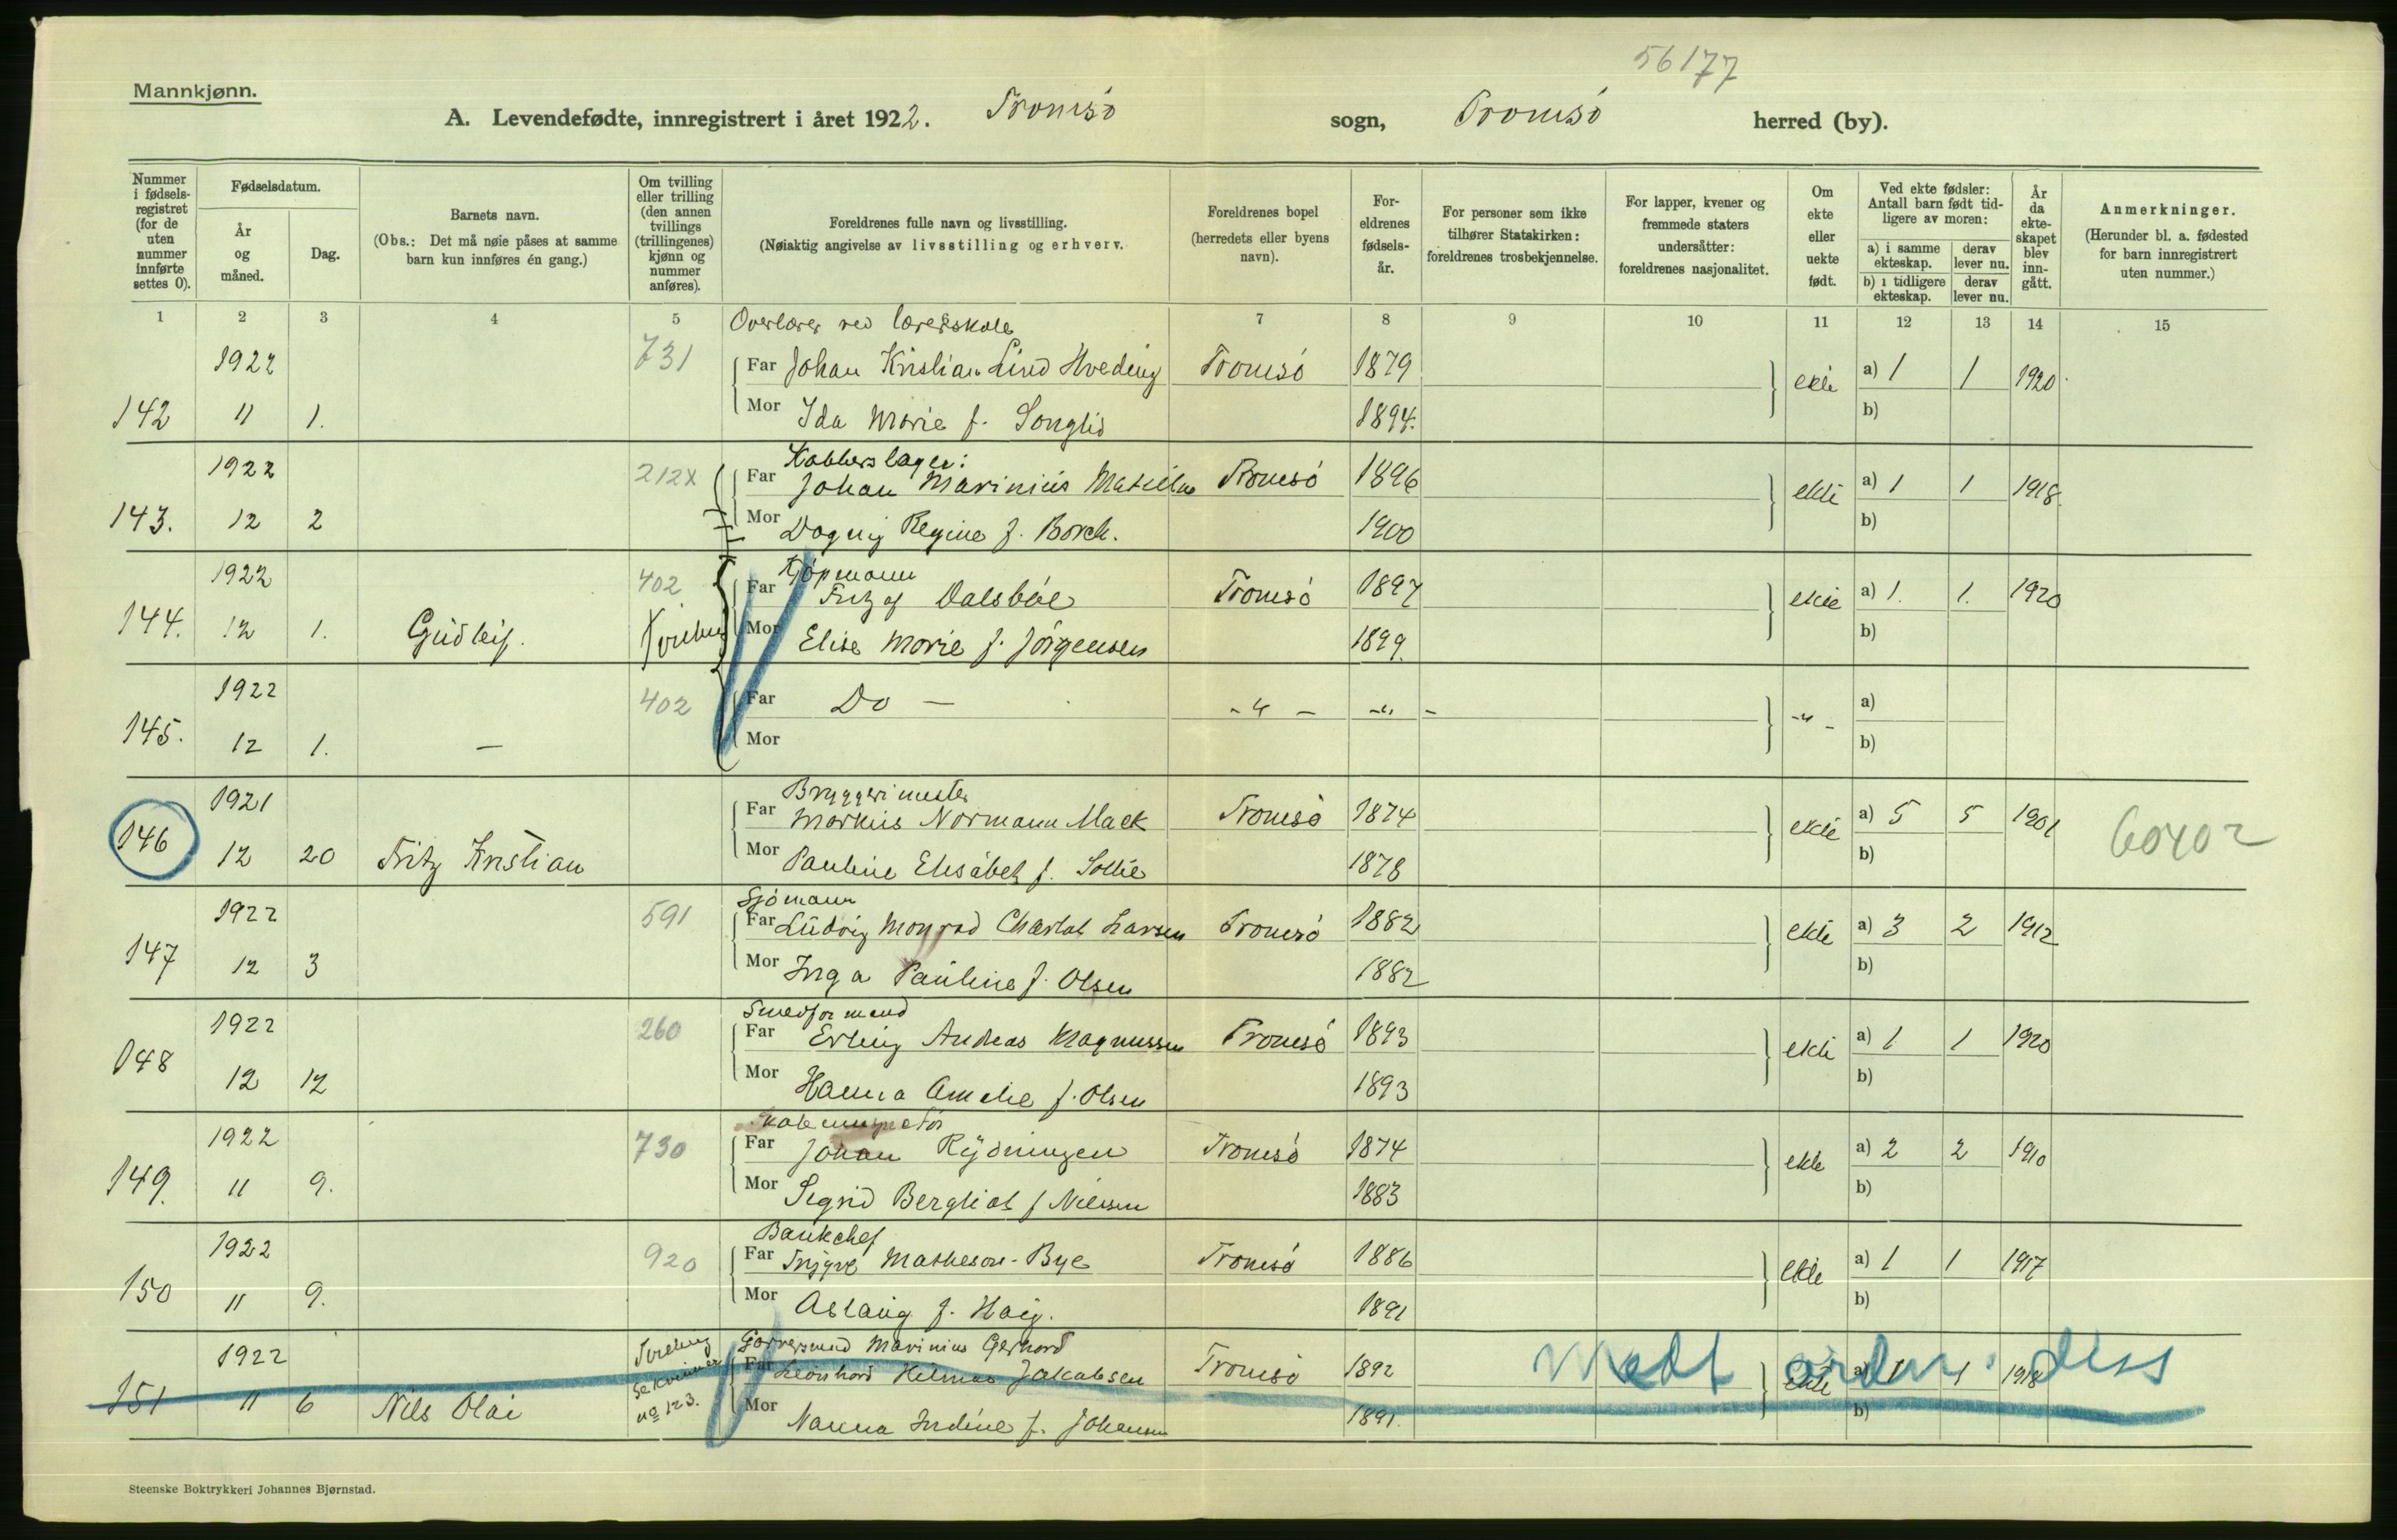 56177
Mannkjønn.
A. Levendefødte, innregistrert i året 1922. Tromsø sogn, Tromsø herred (by).
Nummer i fødsels-registret (for de uten nummer innførte settes 0).
Fødselsdatum.
År og måned.
Dag.
Barnets navn.
(Obs.: Det må nøie påses at samme barn kun innføres én gang.)
Om tvilling eller trilling (den annen tvillings (trillingenes) kjønn og nummer anføres).
Foreldrenes fulle navn og livsstilling.
(Nøiaktig angivelse av livsstilling og erhverv.
Foreldrenes bopel (herredets eller byens navn).
For-eldrenes fødsels-år.
For personer som ikke tilhører Statskirken: foreldrenes trosbekjennelse.
For lapper, kvener og fremmede staters undersåtter: foreldrenes nasjonalitet.
Om ekte eller uekte født.
Ved ekte fødsler: Antall barn født tid-ligere av moren:
a) i samme ekteskap. derav lever nu.
b) i tidligere ekteskap. derav lever nu.
År da ekte-skapet blev inn-gått.
Anmerkninger.
(Herunder bl. a. fødested for barn innregistrert uten nummer.)
1 2 3 4 5 7 8 9 10 11 12 13 14 15
Overlærer ved lærerskole
1922 731 Far Johan Kristian Lind Hveding Tromsö 1879 ekte a) 1 1 1920
142 11 1. Mor Ida Marie f. Songlid 1894. b)
Kobberslager:
1922 212x Far Johan Marinius Tromsö 1896 ekte a) 1 1 1918.
143. 12 2 Mor Dagny Regine f. Borch. 1900 b)
Kjöpmann
1922 402 Far Dalsböe Tromsö 1897 ekte a) 1. 1. 1920
144. 12 1. Gudleif. Mor Elise Marie f. Jörgensen 1899. b)
1922 402 Far Do — - " - - " - - " - a)
145. 12 1. — Mor b)
Bryggerimester
1921 Far Markus Normann Mack Tromsö 1874 ekte a) 5 5 1901 60402
146 12 20 Fritz Kristian Mor Pauline Elisabet f. 1878 b)
Sjömann
1922 591 Far Ludvig Monrad Charlot Larsen Tromsö 1882 ekte a) 3 2 1912
147 12 3 Mor Inga Pauline f. Olsen 1882 b)
Smedformand
1922 260 Far Erling Andreas Magnussen Tromsö 1893 ekte a) 1 1 1920
148 12 12 Mor Hanna Amelie f. Olsen 1893 b)
1922 730 Far Johan Rydningen Tromsö 1874 ekte a) 2 2 1910
149. 11 9. Mor Sigrid Bergliot f Nilsen 1883 b)
Bankchef
1922 920 Far Trygve Matheson-Bye Tromsö 1886 ekte a) 1 1 1917
150 11 9. Mor Aslaug f. Haig. 1891 b)
Garversvend Marinius Gerhard
1922 Far Leonhard Hilmar Jakobsen Tromsö 1892 ekte a) 1 1 1918
151 11 6 Nils Olai no 123. Mor Nanna Indine f. Johansen 1891. b)
Steenske Boktrykkeri Johannes Bjørnstad.